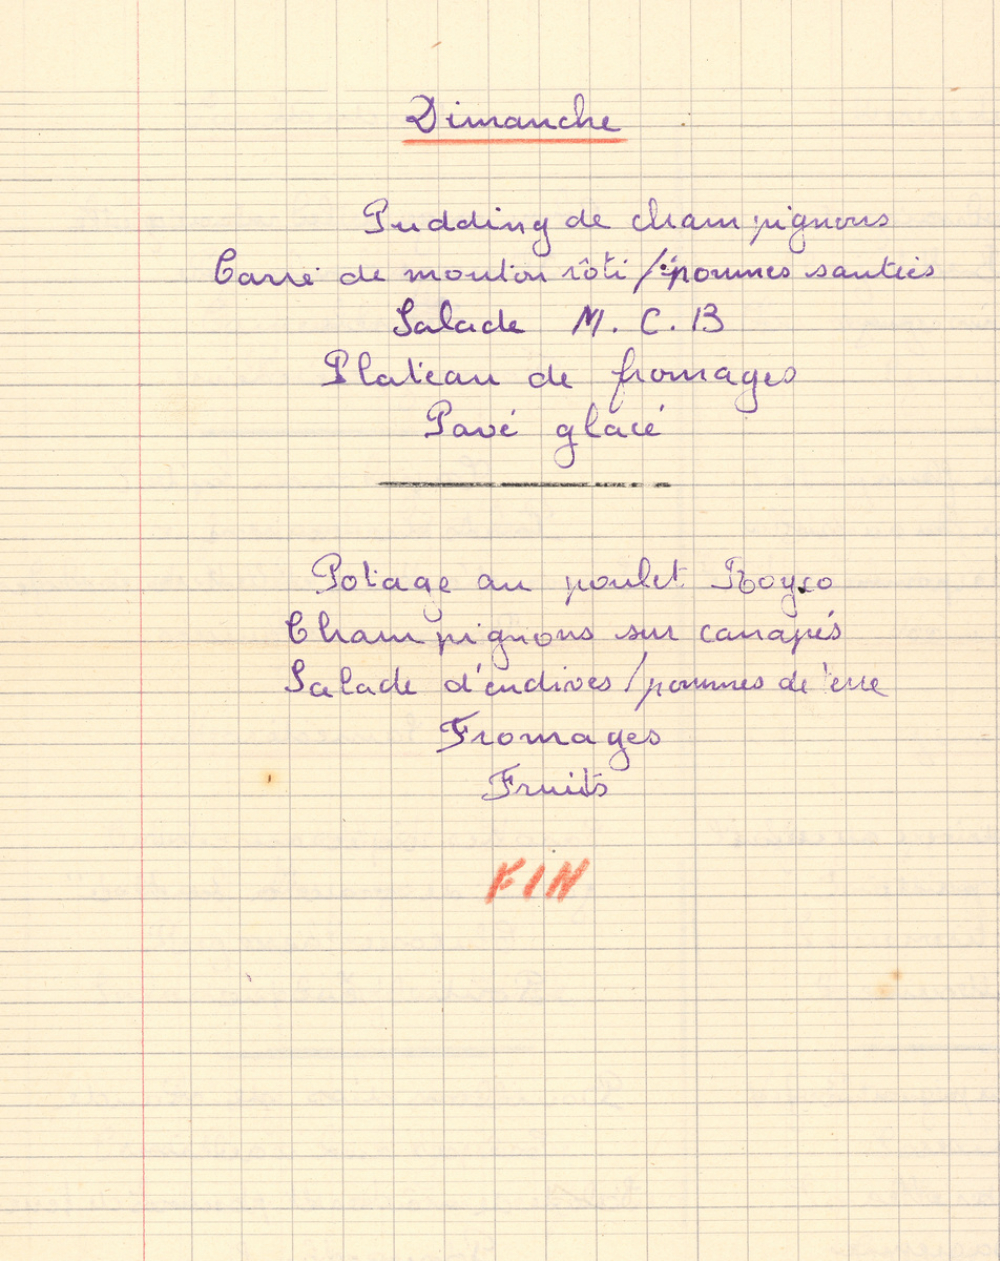 Dimanche
Pudding de champignons
Carré de mouton rôti / pommes sautées
Salade M. C. B
Plateau de fromages
Pavé glacé
Potage au poulet Royco
Champignons sur canapés
Salade d'endives / pommes de terre
Fromages
Fruits
FIN